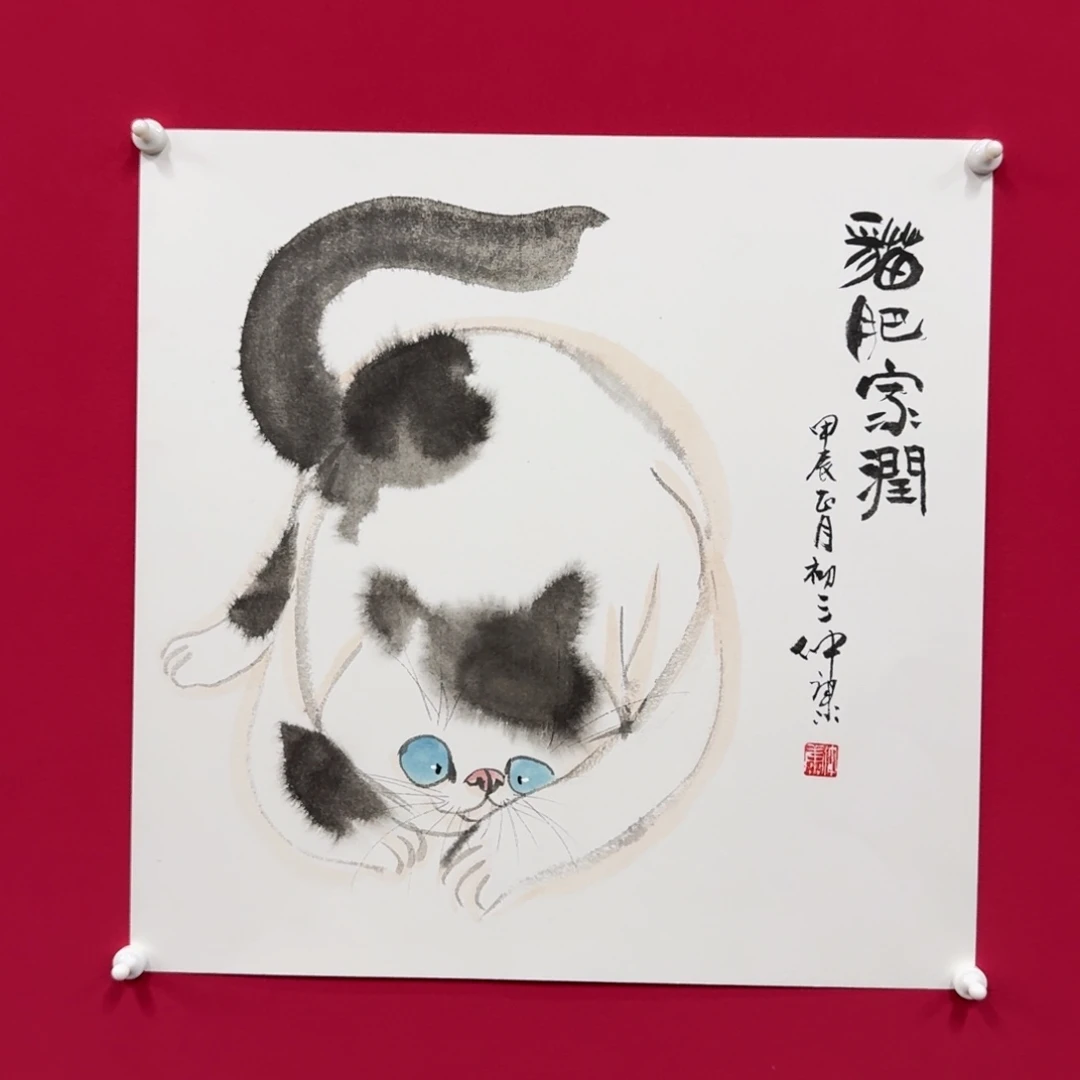 貓肥家潤
甲辰正月初三仲